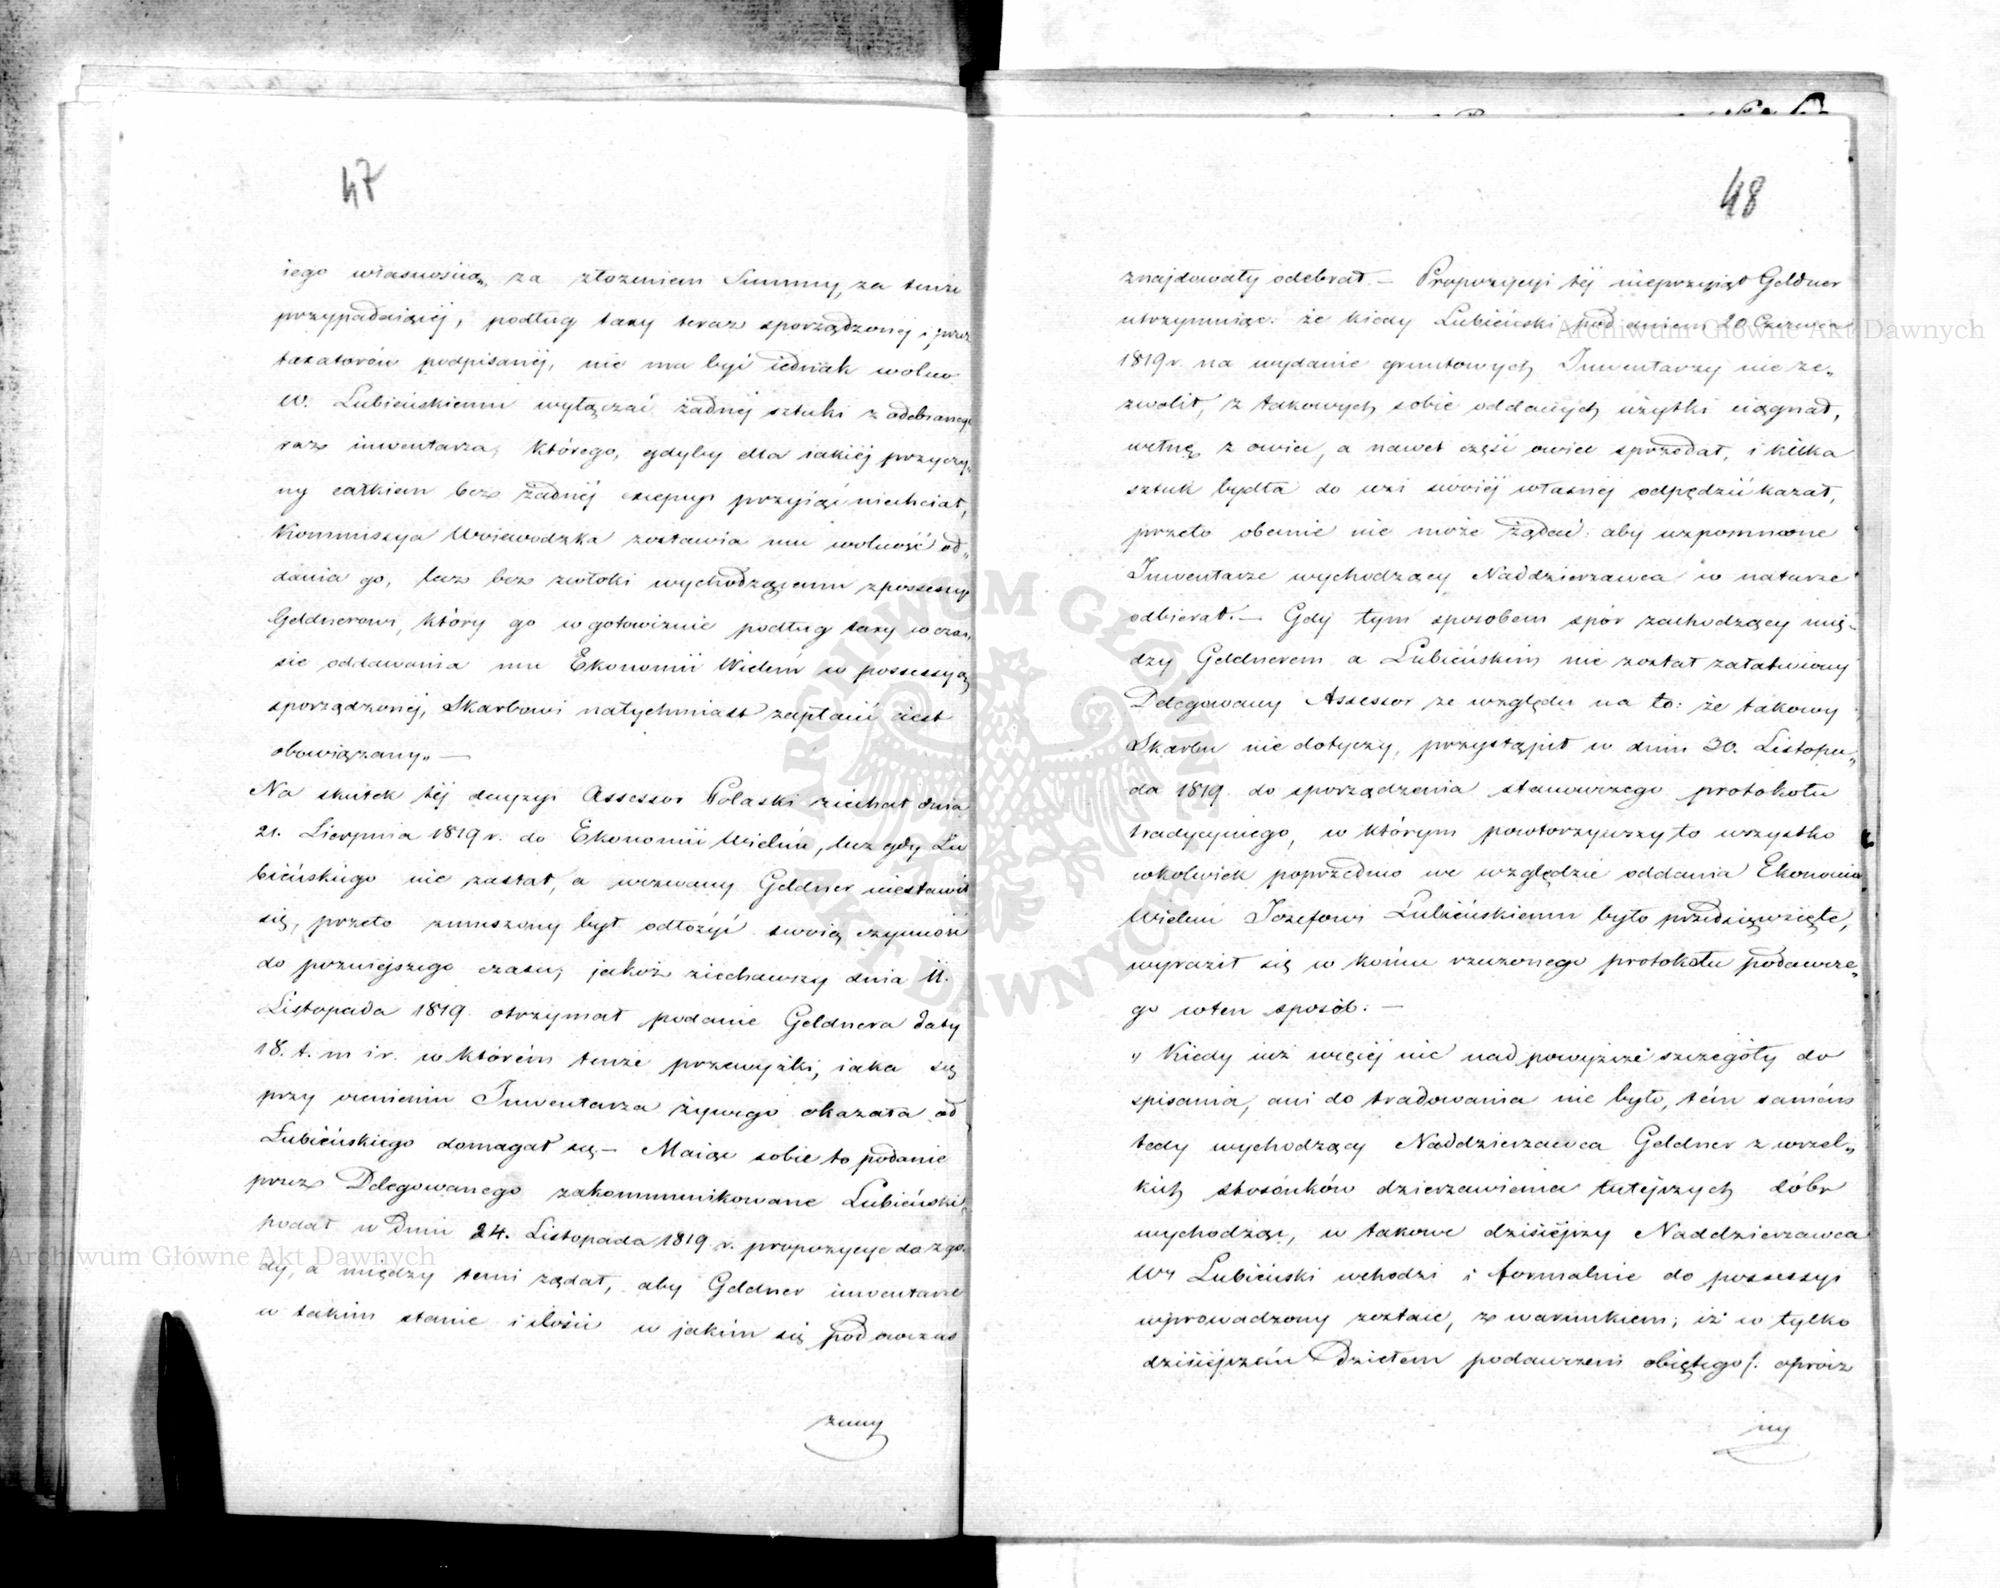 47
iego własnością, za złozeniem Summy, za tenże
przypadaiącéj, podług taxy teraz sporządzonej i przez
taxatorów podpisanéj, nie ma być iednak wolno
W. Lubieńskiemu wyłączać żadnéj sztuki z odebranego
raz inwentarza, którego, gdyby dla iakiéj przyczy„
ny całkiem bez żadnéj excepcyi przyiąć niechciał,
Kommissya Woiewodzka zostawia mu wolność od„
dania go, lecz bez zwłoki wychodzącemu z possessyi
Geldnerowi, który go w gotowiznie podług taxy w cza„
sie oddawania mu Ekonomii Wieluń w possessyą
sporządzonéj, Skarbowi natychmiast zapłacić iest
obowiązany„ —
Na skutek téj decyzyi Assessor Polaski ziechał dnia
21. Sierpnia 1819 r. do Ekonomii Wieluń, lecz gdy Lu
bieńskiego nie zastał, a wezwany Geldner niestawił
się, przeto zmuszony był odłożyć swoią czynność
do pozniejszego czasu, jakoż ziechawszy dnia 11.
Listopada 1819. otrzymał podanie Geldnera daty
18. t. m i r. w którém tenże przewyżki, iaka się
przy ocenieniu Inwentarza żywego okazała od
Łubieńskiego domagał się. — Maiąc sobie to podanie
przez Delegowanego zakommunikowane Lubieński,
podał w Dniu 24. Listopada 1819 r. propozycye do zgo„
dy, a między temi żądał, aby Geldner inwentarze
w takim stanie i ilości w jakim się podowczas
znay
48
znajdowały odebrał. — Propozycyi téj nieprzyiął Geldner
utrzymuiąc: że kiedy Lubieński pod dniem 20 Czerwca
1819 r. na wydanie gruntowych Inwentarzy nie ze„
zwolił, z takowych sobie oddanych użytki ciągnął,
wełnę z owiec, a nawet część owiec sprzedał, i kilka
sztuk bydła do wsi swoiéj własnéj odpędzić kazał,
przeto obecnie nie może żądać: aby wspomnione
Inwentarze wychodzący Naddzierzawca w naturze
odbierał. — Gdy tym sposobem spór zachodzący mię„
dzy Geldnerem a Lubieńskim nie został załatwiony
Delegowany Assessor ze względu na to: że takowy
Skarbu nie dotyczy, przystąpił w dniu 30. Listopa„
da 1819. do sporządzenia stanowczego protokołu
tradycyinego, w którym powtorzywszy to wszystko
cokolwiek poprzednio we względzie oddania Ekonomii
Wieluń Jozefowi Łubieńskiemu było przedsięwzięte,
wyraził się w końcu rzeczonego protokołu podawcze„
go w ten sposób: —
„ Kiedy iuż więcéj nic nad powyższe szczegóły do
spisania, ani do tradowania nie było, tém samém
tedy wychodzący Naddzierzawca Geldner z wszel„
kich stosónków dzierzawienia tutejszych dóbr
wychodząc, w takowe dzisiéjszy Naddzierzawca
Wy Lubieński wchodzi i formalnie do possessyi
wprowadzony zostaie, z warunkiem, iż w tylko
dzisiéjszém Dziełem podawczém obiętego /: oprócz
ny
Archiwum Główne Akt Dawnych
Archiwum Główne Akt Dawnych
ARCHIWUM GŁÓWNE AKT DAWNYCH